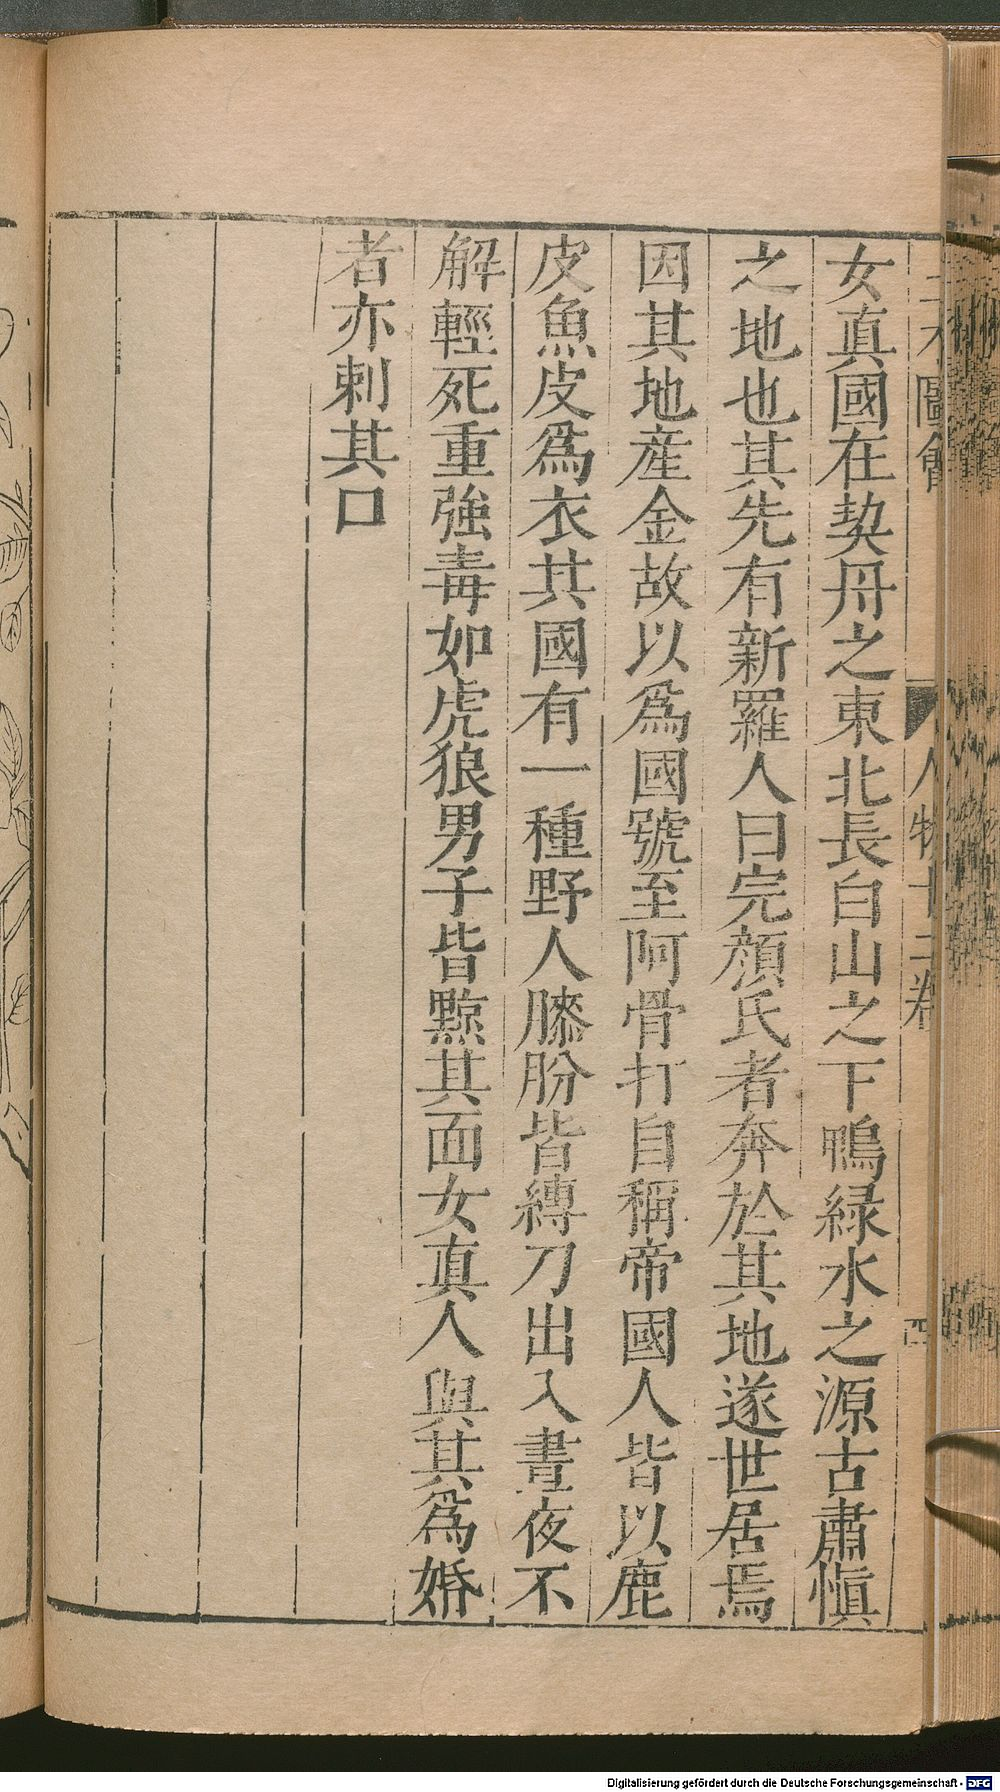 女真國在契丹之東北長白山之下鴨緑水之源古肅愼
之地也其先有新羅人曰完顔氏者奔於其地遂世居焉
因其地産金故以爲國號至阿骨打自稱帝國人皆以鹿
皮魚皮爲衣其國有一種野人䏶肦皆縛刀出入晝夜不
解輕死重強毒如虎狼男子皆黥其面女真人與其爲婚
者亦刺其口
圖會 人物十二卷 四
Digitalisierung gefördert durch die Deutsche Forschungsgemeinschaft - DFG